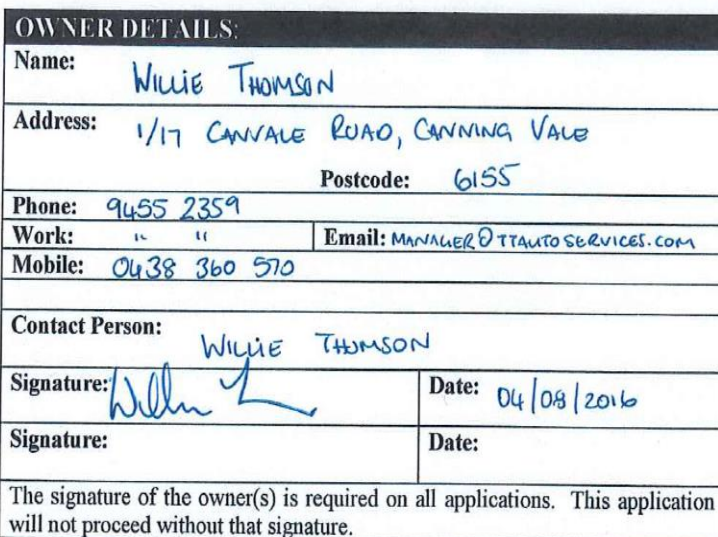 OWNER DETAILS:
Name: WILLIE THOMSON
Address: 1/17 CANVALE ROAD, CANNING VALE
Postcode: 6155
Phone: 9455 2359
Work: " " Email: MANAGER@TTAUTOSERVICES.COM
Mobile: 0438 360 570
Contact Person: WILLIE THOMSON
Signature: Date: 04/08/2016
Signature: Date:
The signature of the owner(s) is required on all applications. This application
will not proceed without that signature.